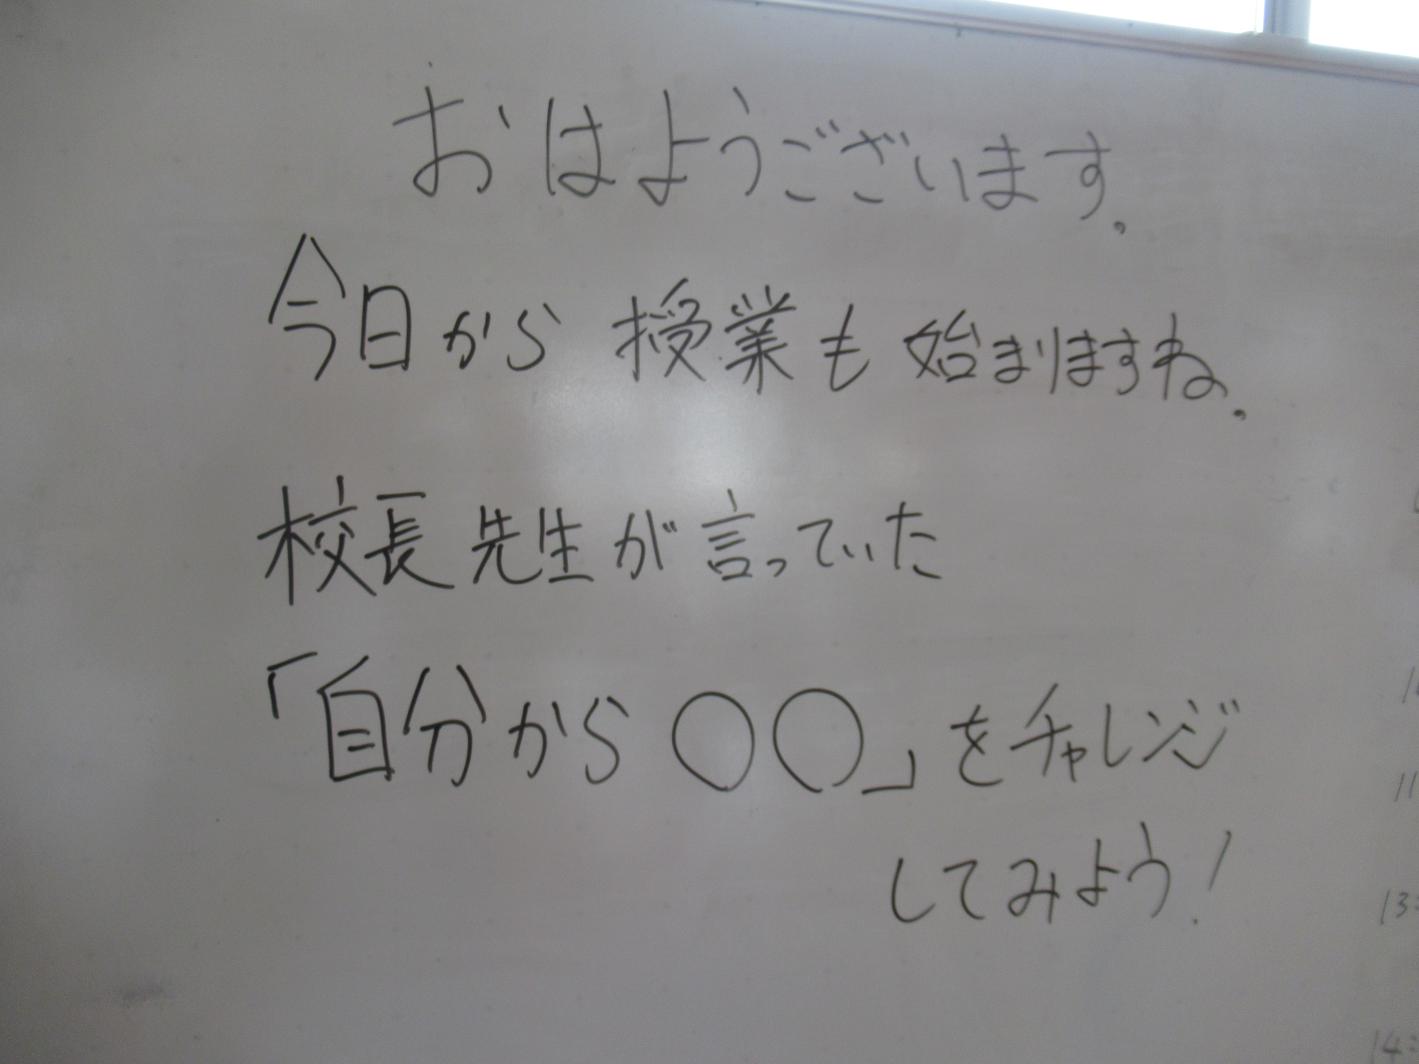 おはようございます。
今日から授業も始まりますね。
校長先生が言っていた
「自分から〇〇」をチャレンジ
してみよう!